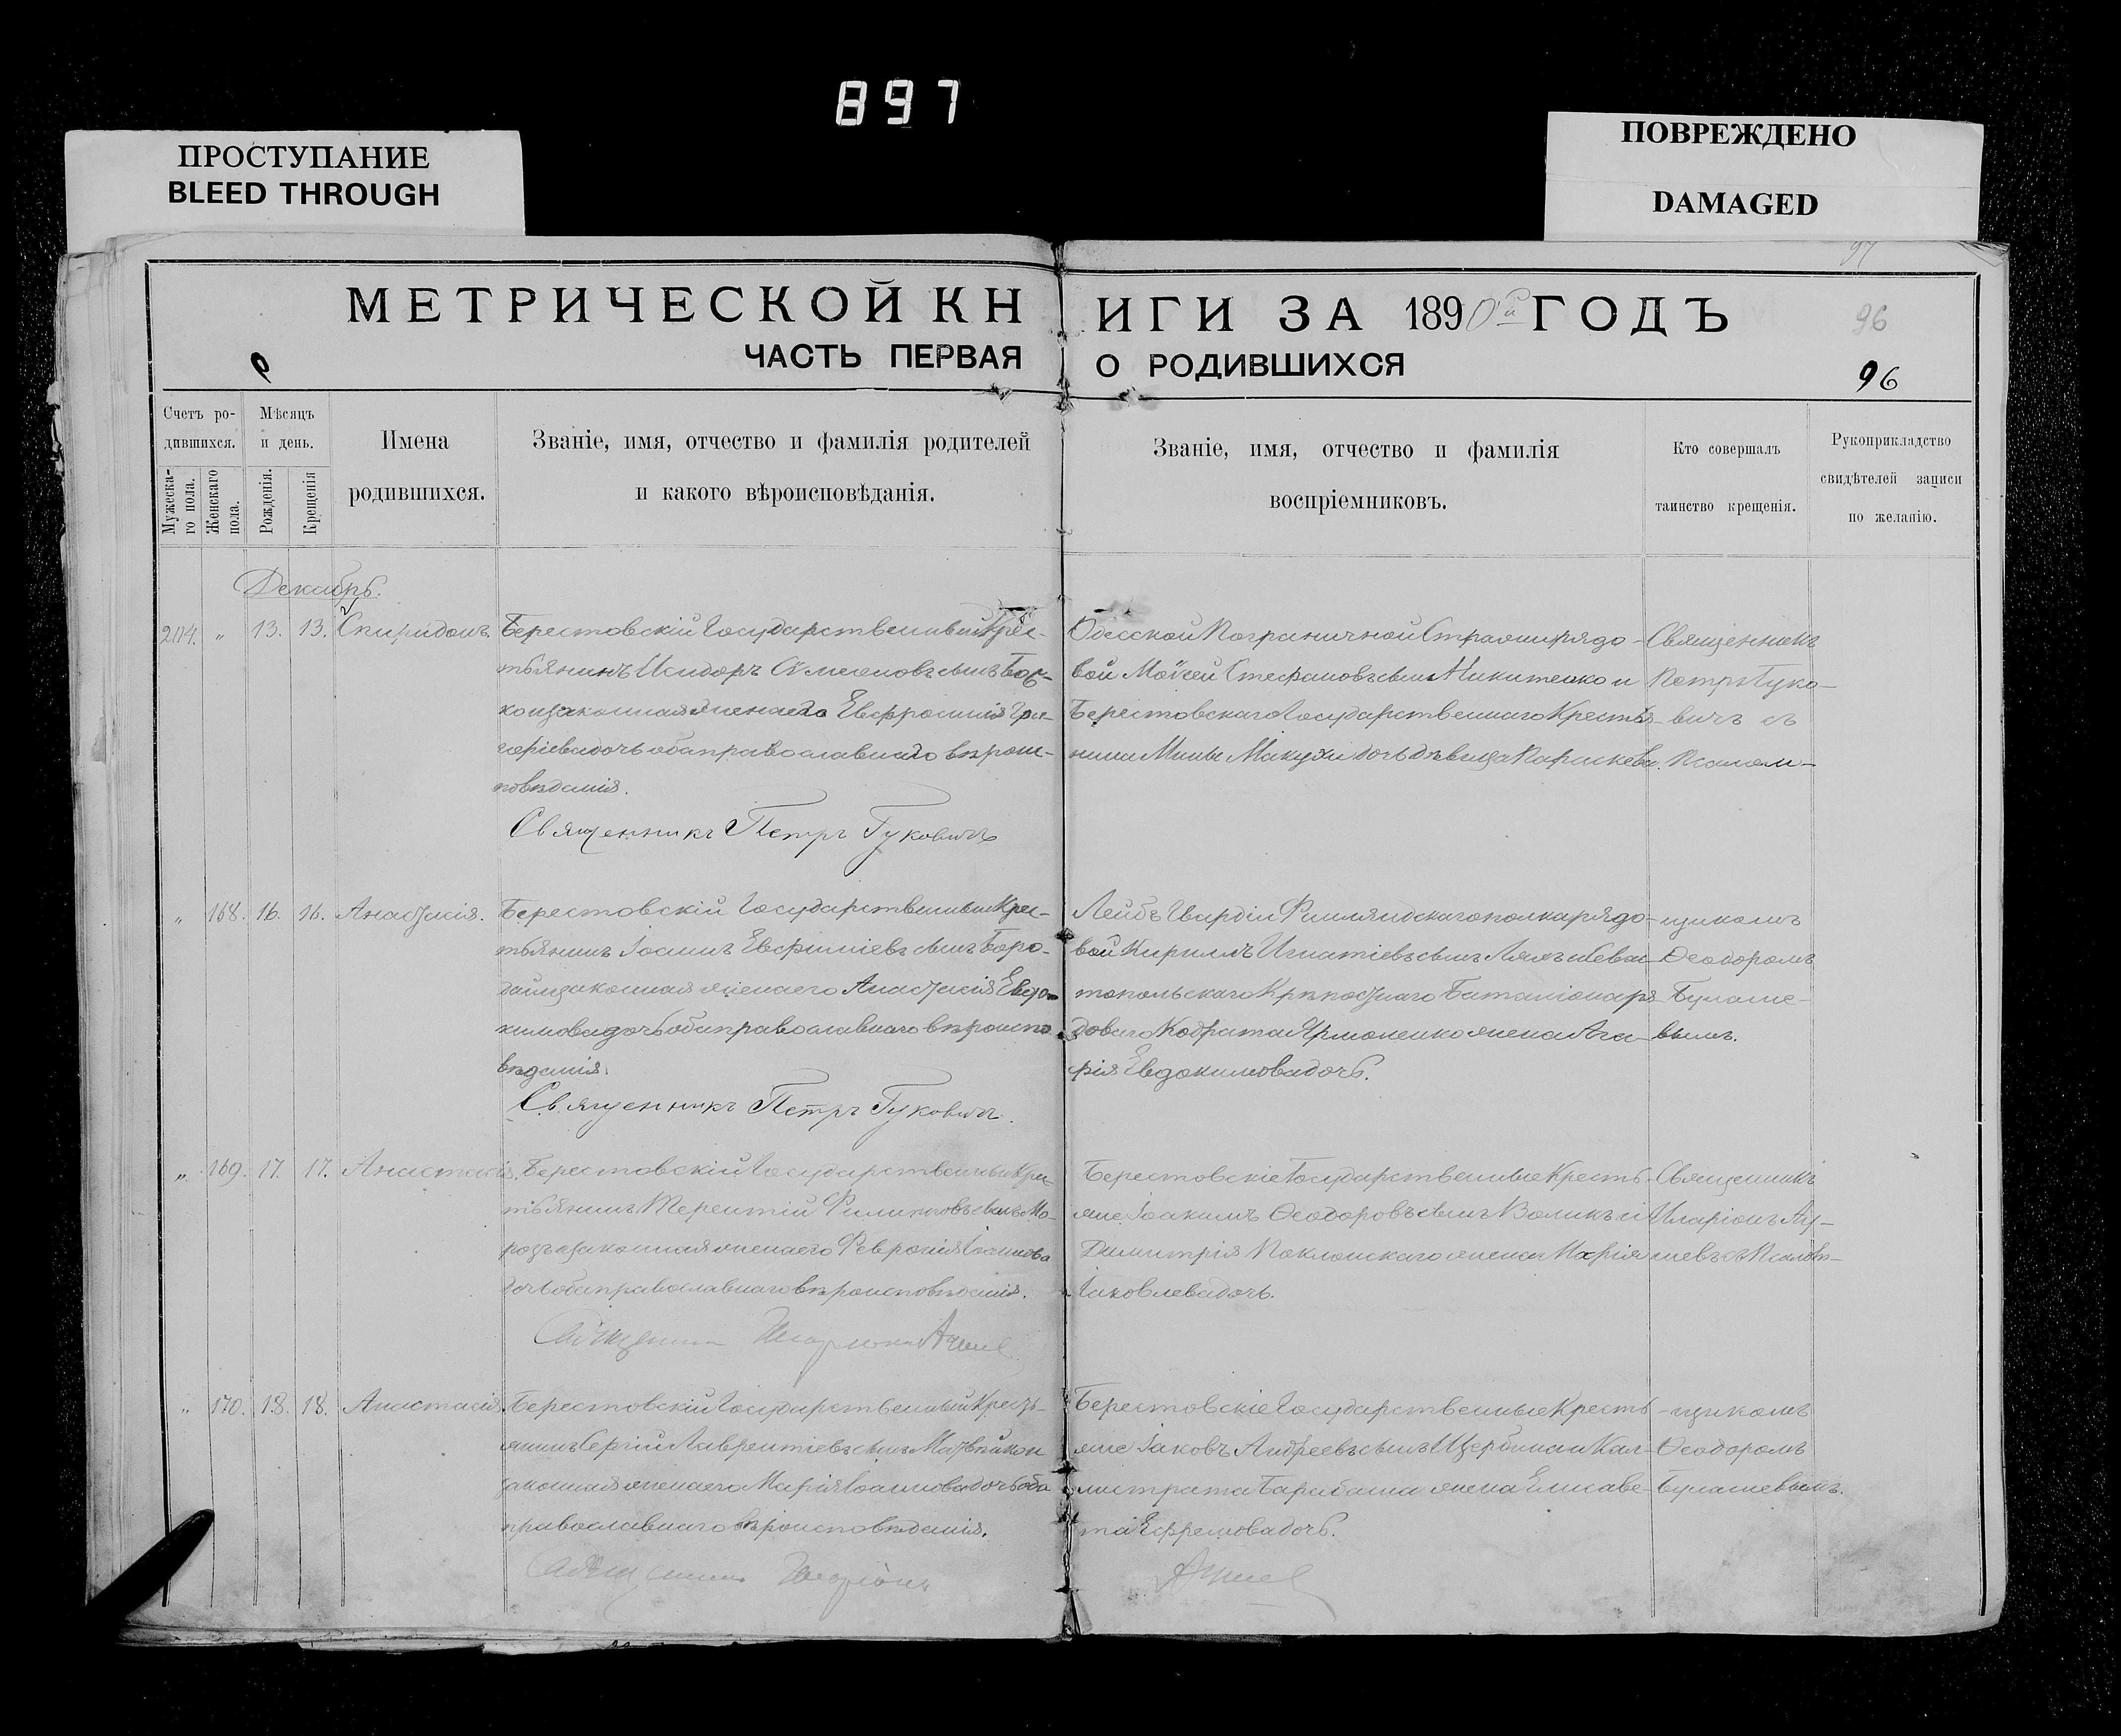 897
ПРОСТУПАНИЕ
BLEED THROUGH
ПОВРЕЖДЕНО
DAMAGED
97
МЕТРИЧЕСКОЙ КНИГИ ЗА 1890й ГОДЪ
96
ЧАСТЬ ПЕРВАЯ О РОДИВШИХСЯ
96
Счетъ ро-
дившихся.
Мужеска-
го пола.
Женскаго
пола.
Мѣсяцъ
и день.
Рожденія.
Крещенія
Имена
родившихся.
Званіе, имя, отчество и фамилія родителей
и какого вѣроисповѣданія.
Званіе, имя, отчество и фамилія
воспріемниковъ.
Кто совершалъ
таинство крещенія.
Рукоприкладство
свидѣтелей записи
по желанію.
Декабрь.
204. " 13. 13. Спиридонъ.
Берестовскій Государственный Крес-
тьянинъ Исидоръ сынъ
законная жена его Евфросинія Гри-
горіева дочь оба православнаго вѣроис-
повѣданія.
Священникъ Петръ Гуковичъ
Одесской Пограничной Стражи рядо-
вой Моѵсей Стефановъ сынъ Микитенко и
Берестовскаго Государственнаго Крестья-
нина Мины Макухи дочь дѣвица Параскева.
Священникъ
Петръ Гуко-
вичъ съ
Псалом-
" 168. 16. 16. Анастасія.
Берестовскій Государственный Крес-
тьянинъ Іоаннъ Евфиміевъ сынъ Боро-
дай законная жена его Анастасія Евдо-
кимова дочь оба православнаго вѣроиспо
вѣданія.
Священникъ Петръ Гуковичъ.
Лейбъ Гвардіи Финляндскаго полка рядо-
вой Кириллъ Игнатіевъ сынъ
топольскаго Крѣпостнаго Баталіона ря-
доваго Кодрата Ярмоленко жена Ага-
фія Евдокимова дочь.
щикомъ
Ѳеодоромъ
Булаше-
вымъ.
" 169. 17. 17. Анастасія.
Берестовскій Государственный Крес-
тьянинъ Терентій Филипповъ сынъ Мо-
розъ законная жена его Феvронія Іоаннова
дочь оба православнаго вѣроисповѣданія.
Берестовскіе Государственные Кресть-
яне Іоакимъ Ѳеодоровъ сынъ Воликъ и
Димитрія Поклонскаго жена Марія
Іаковлева дочь.
Священникъ
Иларіонъ
Псалом-
" 170. 18. 18. Анастасія.
Берестовскій Государственный Кресть-
янинъ Сергій Лаврентіевъ сынъ Матвѣйкои
законная жена его Марія Іоаннова дочь оба
православнаго вѣроисповѣданія.
Берестовскіе Государственные Кресть-
яне Іаковъ Андреевъ сынъ Щербина и Кал-
листрата Барабаша жена Елисаве-
та Ефремова дочь.
щикомъ
Ѳеодоромъ
Булашевымъ.